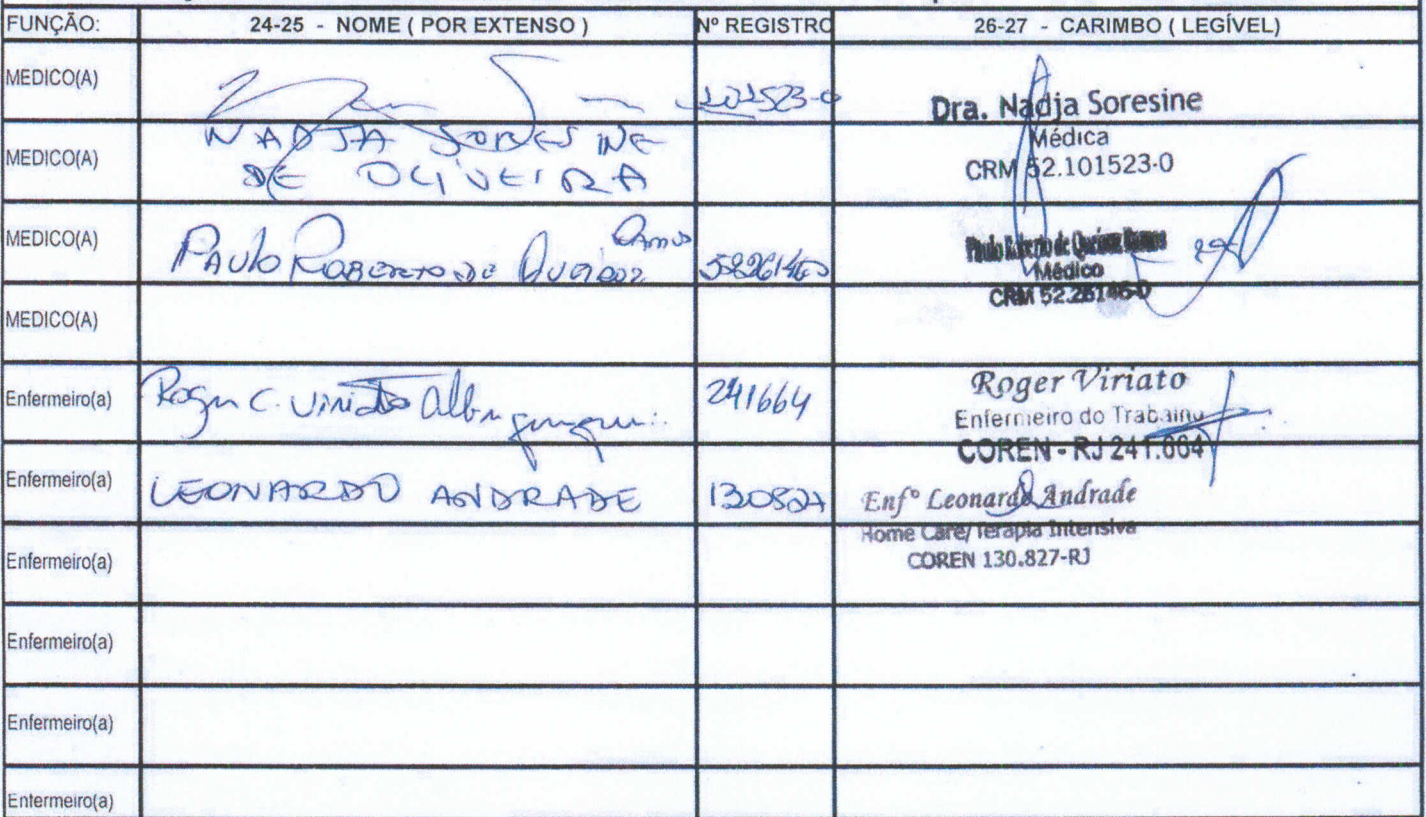 FUNÇÃO: 24-25 - NOME ( POR EXTENSO ) Nº REGISTRO 26-27 - CARIMBO ( LEGÍVEL)
MEDICO(A) 101523-0 Dra. Nadja Soresine
Médica
CRM 52.101523-0
MEDICO(A) NADJA SORESINE
DE OLIVEIRA
MEDICO(A) PAULO ROBERTO DE QUEIROZ Ramos Paulo Roberto de Queiroz Ramos
Médico
CRM 52.26146-0
MEDICO(A)
Enfermeiro(a) Roger C. Viriato Albuquerque 241664 Roger Viriato
Enfermeiro do Trabalho
COREN - RJ 241.664
Enfermeiro(a) LEONARDO ANDRADE 130827 Enfº Leonardo Andrade
Home Care/Terapia Intensiva
COREN 130.827-RJ
Enfermeiro(a)
Enfermeiro(a)
Enfermeiro(a)
Enfermeiro(a)